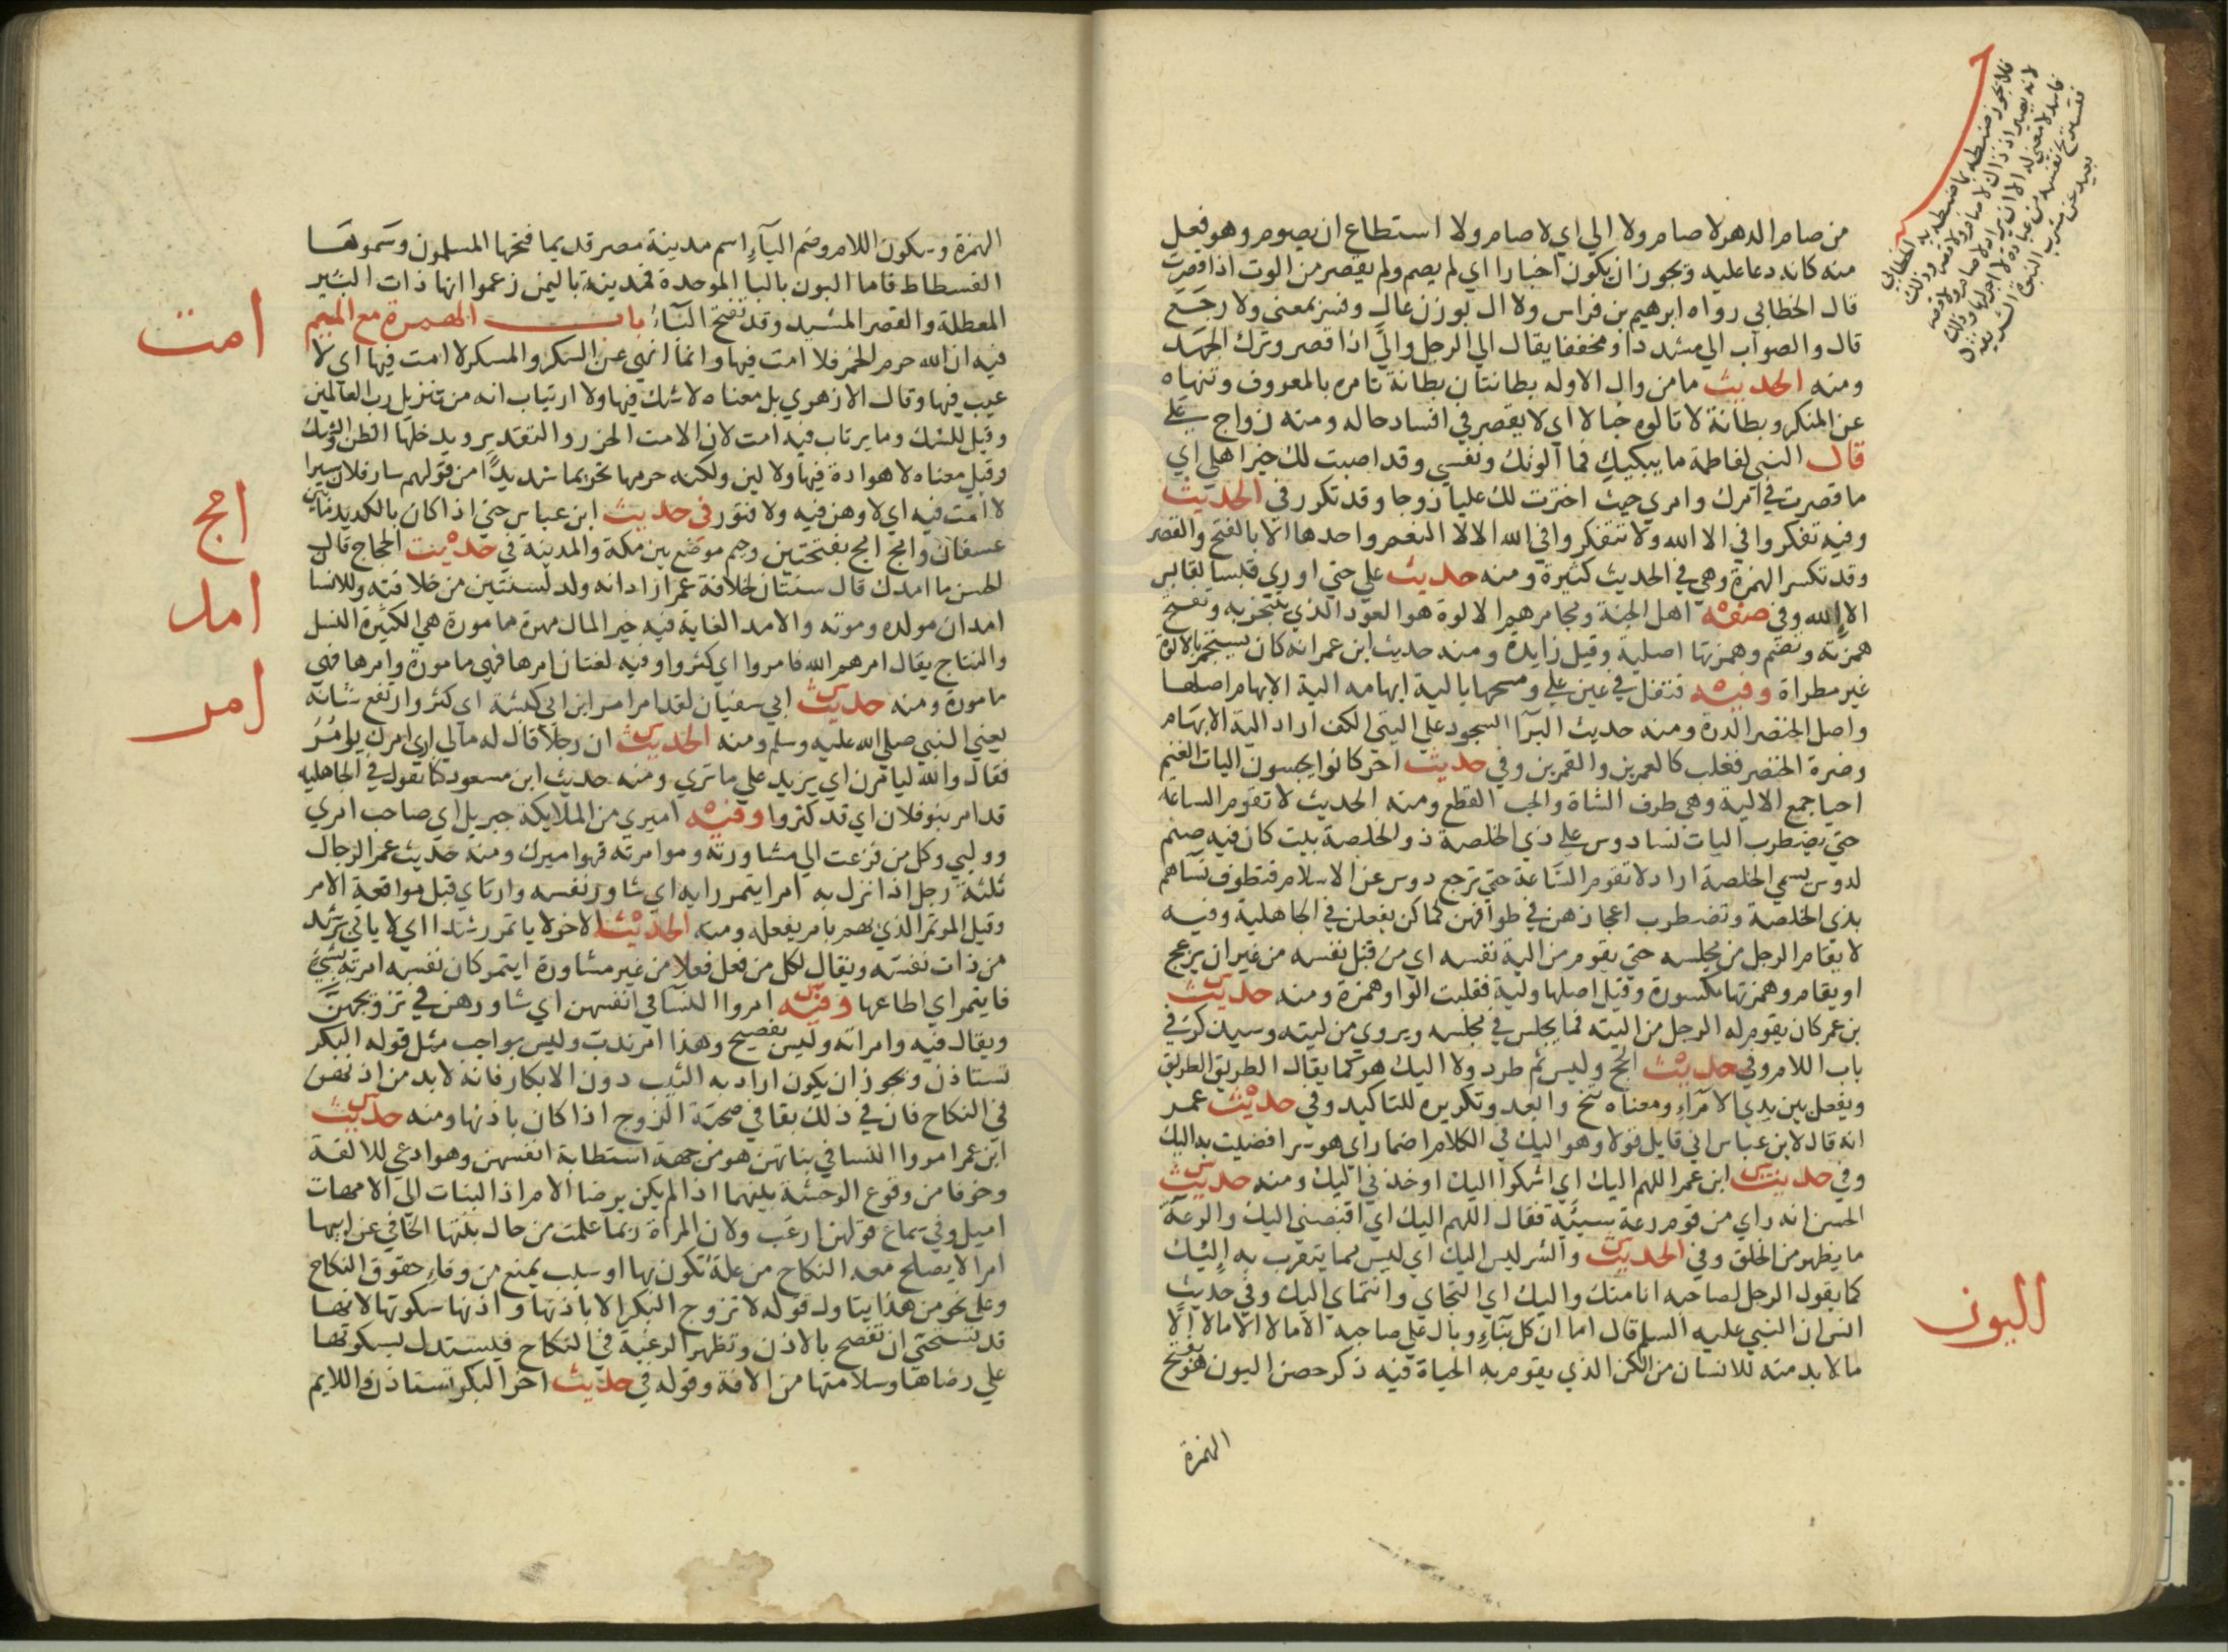 من صام الدهر لا صام ولا الي اي لا صام ولا استطاع ان يصوم وهو فعل
منه كانه دعا عليه ويجوز ان يكون اخبارا اي لم يصم ولم يقصر من الوت اذا قصرت
قال الخطابي رواه ابرهيم بن فراس ولا ال بوزن عال وفسر بمعني ولا رجع
قال والصواب الي مشددا ومخففا يقال الي الرجل والي اذا قصر وترك الجهد
ومنه الحديث ما من وال الاوله بطانتان بطانة تامره بالمعروف وتنهاه
عن المنكر وبطانة لا تالوه خبالا اي لا يقصر في افساد حاله ومنه زواج علي
قال النبي لفاطمة ما يبكيك فما الوتك ونفسي وقد اصبت لك خير اهلي اي
ما قصرت في امرك وامري حيث اخترت لك عليا زوجا وقد تكرر في الحديث
وفيه تفكروا في الا الله ولا تتفكروا في الله الالا النعم واحدها الا بالفتح والقصر
وقد تكسر الهمزة وهي في الحديث كثيرة ومنه حديث علي حتي اوري قبسا لقابس
الا الله وفي صفة اهل الجنة ومجامرهم الالوة هو العود الذي يتبخر به وتفتح
همزته وتضم وهمزتها اصلية وقيل زايدة ومنه حديث ابن عمر انه كان يستجمر بالالوة
غير مطراة وفيه فتفل في عين علي ومسحها بالية ابهامه الية الابهام اصلها
واصل الخنصر الدرة ومنه حديث البرآ السجود علي اليتي الكف اراد الية الابهام
وضرة الخنصر فغلب كالعمرين والقمرين وفي حديث اخر كانوا يجبون اليات الغنم
احيا جمع الالية وهي طرف الشاة والجب القطع ومنه الحديث لا تقوم الساعة
حتي يضطرب اليات نسا دوس علي ذي الخلصة ذو الخلصة بيت كان فيه صنم
لدوس يسمي الخلصة اراد لا تقوم الساعة حتي ترجع دوس عن الاسلام فتطوف نساهم
بذي الخلصة وتضطرب اعجازهن في طوافهن كما كن يفعلن في الجاهلية وفيه
لا يقام الرجل من مجلسه حتي يقوم من الية نفسه اي من قبل نفسه من غير ان يزعج
او يقام وهمزتها مكسورة وقيل اصلها ولية فقلبت الواو همزة ومنه حديث
بن عمر كان يقوم له الرجل من اليته فما يجلس في مجلسه ويروي من ليته وسيذكر في
باب اللام وفي حديث الحج وليس ثم طرد ولا اليك هو كما يقال الطريق الطريق
ويفعل بين يدي الامرآء ومعناه تنح وابعد وتكريره للتاكيد وفي حديث عمر
انه قال لابن عباس اني قايل قولا وهو اليك في الكلام اضمار اي هو سر افضيت به اليك
وفي حديث ابن عمر اللهم اليك اي اشكوا اليك او خذني اليك ومنه حديث
الحسن انه راي من قوم رعة سيئة فقال اللهم اليك اي اقبضني اليك والرعة
ما يظهر من الخلق وفي الحديث والشر ليس اليك اي ليس مما يتقرب به اليك
كما يقول الرجل لصاحبه انا منك واليك اي التجاي وانتماي اليك وفي حديث
انس ان النبي عليه السلم قال اما ان كل بنآء وبال علي صاحبه الا مالا الا مالا الا
ما لا بد منه للانسان من الكن الذي يقوم به الحياة فيه ذكر حصن اليون هو بفتح
الهمزة
اليون
فلا يجوز ضبطه بما ضبطه به الخطابي
لانه يصير اذ ذاك لا صام ولا
الهمزة وسكون اللام وضم اليآء اسم مدينة مصر قديما فتحها المسلمون وسموها
الفسطاط فاما البون بالبا الموحدة فمدينة باليمن زعموا انها ذات البير
المعطلة والقصر المشيد وقد تفتح البآء باب الهمزة مع الميم
فيه ان الله حرم الخمر فلا امت فيها وانما نهي عن السكر والمسكر لا امت فيها اي لا
عيب فيها وقال الازهري بل معناه لا شك فيها ولا ارتياب انه من تنزيل رب العالمين
وقيل للشك وما يرتاب فيه امت لان الامت الحزر والتقدير ويدخلها الظن والشك
وقيل معناه لا هوادة فيها ولا لين ولكنه حرمها تحريما شديدا من قولهم سار فلان سيرا
لا امت فيه اي لا وهن فيه ولا فتور في حديث ابن عباس حتي اذا كان بالكديد ما بين
عسفان وامج امج بفتحتين وجيم موضع بين مكة والمدينة في حديث الحجاج قال
للحسن ما امدك قال سنتان لخلافة عمر اراد انه ولد لسنتين من خلافته وللانسا
امدان مولده وموته والامد الغاية فيه خير المال مهرة مامورة هي الكثيرة النسل
والنتاج يقال امرهم الله فامروا اي كثروا وفيه لغتان امرها فهي مامورة وامرها فهي
مامورة ومنه حديث ابي سفيان لقد امر امر ابن ابي كبشة اي كثر وارتفع شانه
يعني النبي صلي الله عليه وسلم ومنه الحديث ان رجلا قال له مالي اري امرك يوامر
فقال والله ليامرن اي يزيد علي ما تري ومنه حديث ابن مسعود كنا نقول في الجاهلية
قد امر بنو فلان اي قد كثروا وفيه اميري من الملايكة جبريل اي صاحب امري
ووليي وكل من فزعت الي مشاورته وموامرته فهو اميرك ومنه حديث عمر الرجال
ثلثة رجل اذا نزل به امر ايتمر رايه اي شاور نفسه وارتاي قبل مواقعة الامر
وقيل الموتمر الذي يهم بامر يفعله ومنه الحديث الاخر لا ياتمر رشدا اي لا ياتي برشد
من ذات نفسه ويقال لكل من فعل فعلا من غير مشاورة ايتمر كان نفسه امرته بشيء
فايتمر اي اطاعها وفيه امروا النسآ في انفسهن اي شاورهن في تزويجهن
ويقال فيه وامرته وليس بفصيح وهذا امر ندب وليس بواجب مثل قوله البكر
تستاذن ويجوز ان يكون اراد به الثيب دون الابكار فانه لا بد من اذنهن
في النكاح فان في ذلك بقا في صحبة الزوج اذا كان باذنها ومنه حديث
ابن عمر امروا النسا في بناتهن هو من جهة استطابة انفسهن وهو ادعي للالفة
وخوفا من وقوع الوحشة بينهما اذا لم يكن برضا الام اذ البنات الي الامهات
اميل وفي سماع قولهن ارغب ولان المراة ربما علمت من حال بنتها الخافي عن ابيها
امرا لا يصلح معه النكاح من علة تكون بها او سبب يمنع من وفآء حقوق النكاح
وعلي نحو من هذا يتاول قوله لا تزوج البكر الا باذنها واذنها سكوتها لانها
قد تستحي ان تفصح بالاذن وتظهر الرغبة في النكاح فيستدل بسكوتها
علي رضاها وسلامتها من الافة وقوله في حديث اخر البكر تستاذن والايم
امت
امج
امد
امر